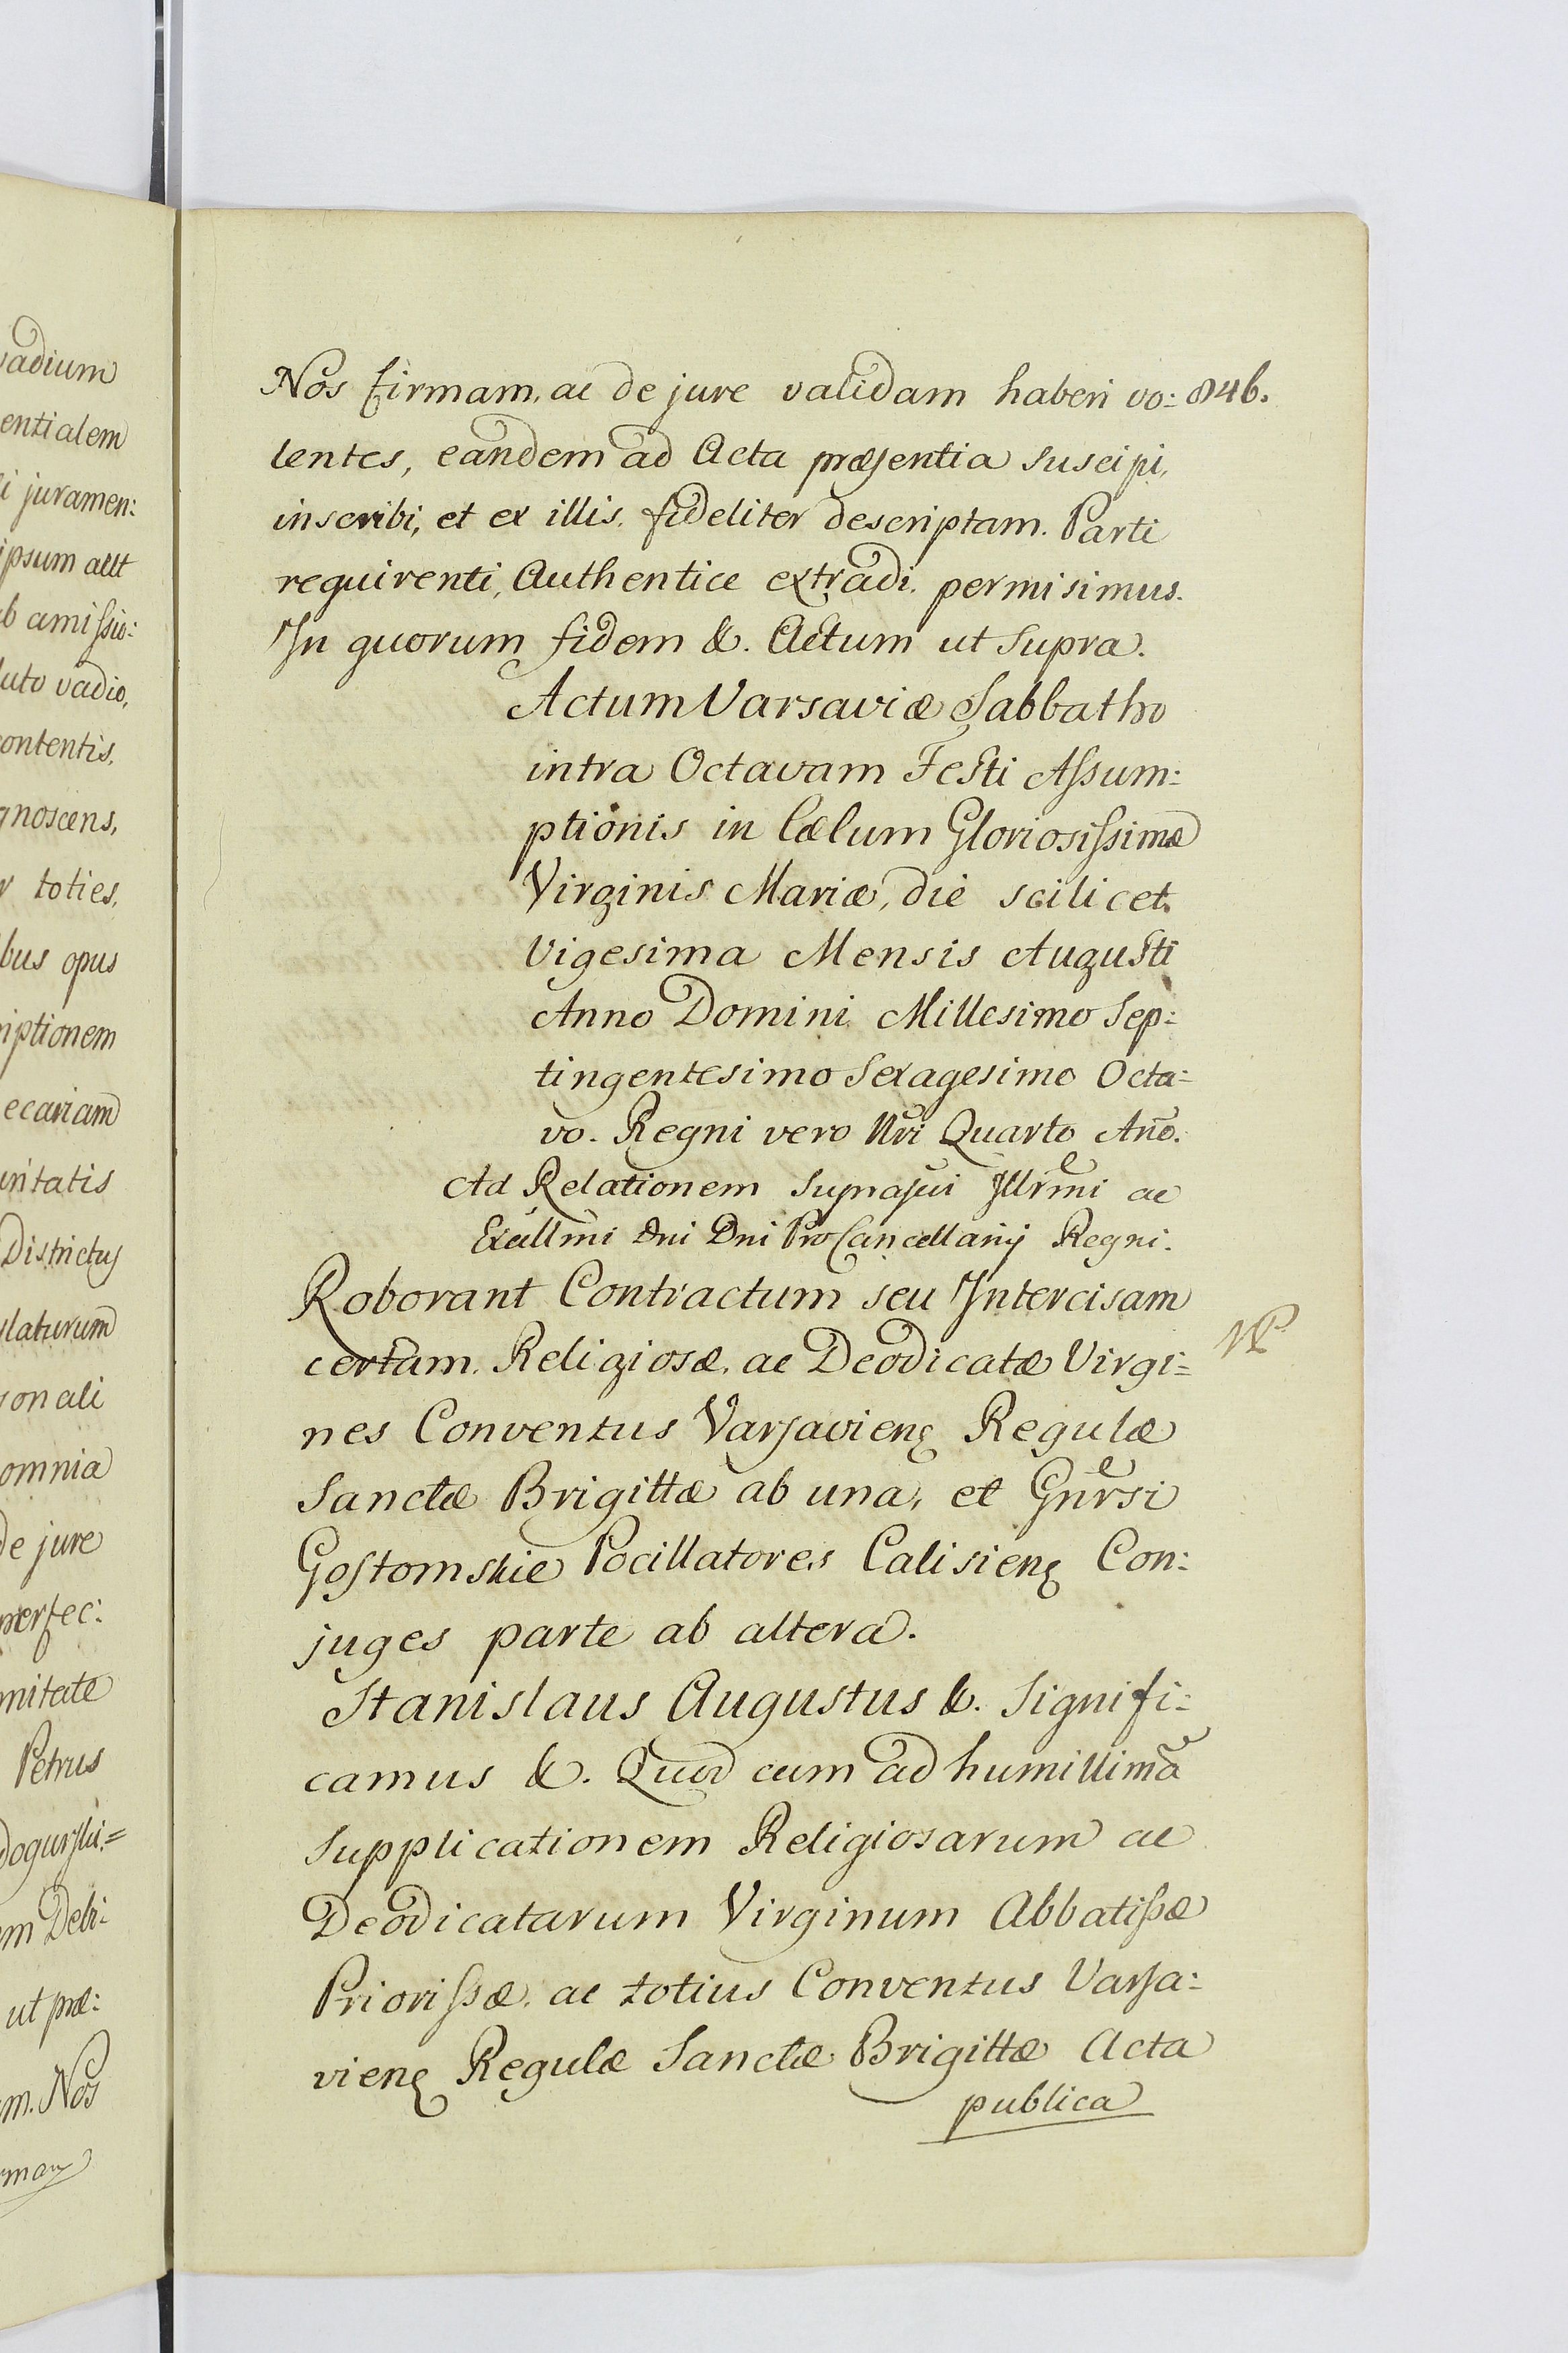 vadium
entialem
i juramen:
ipsum allt
b amissio:
luto vadio,
contentis.
gnoscens,
r toties,
bus opus
riptionem
ecariam
untatis
Districtus
ulaturum
sonali
omnia
de jure
perfec:
mitate
Petrus
dogurski=
m Debi-
ut præ:
m. Nos
Nos firmam, ac de jure validam haberi vo: 846.
lentes, eandem ad Acta præsentia suscipi,
inscribi, et ex illis, fideliter descriptam. Parti
requirenti, Authentice extradi, permisimus.
In quorum fidem &. Actum ut supra.
Actum Varsaviæ Sabbatho
intra Octavam Festi Assum:
ptionis in Cælum Gloriosissimæ
Virginis Mariæ, die scilicet
Vigesima Mensis Augusti
Anno Domini Millesimo Sep:
tingentesimo Sexagesimo Octa=
vo. Regni vero Nri Quarto Año.
Ad Relationem Suprascti Illrmi ac
Excellmi Dni Dni ProCancellarij Regni.
Roborant Contractum seu Intercisam
certam. Religiosæ, ac Deodicatæ Virgi=
nes Conventus Varsavieng Regulæ
Sanctæ Brigittæ ab una, et Gnrsi
Gostomskie Pocillatores Calisieng Con:
juges parte ab altera.
Stanislaus Augustus &. Signifi:
camus &. Quod cum ad humillimã
Supplicationem Religiosarum ac
Deodicatarum Virginum Abbatissæ
Priorissæ, ac totius Conventus Varsa:
vieng Regulæ Sanctæ Brigittæ Acta
publica